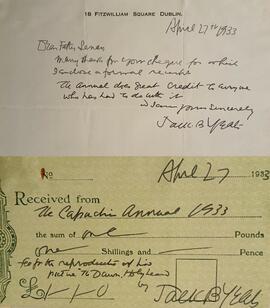 18 FITZWILLIAM SQUARE DUBLIN.
April 27th 1933
Dear Father Senan
Many thanks for your cheque for which
I enclose a formal receipt
The Annual does great credit to everyone
who has had to do with it
I am yours sincerely
Jack B Yeats
No
April 27 1933
Received from
The Capuchin Annual 1933
the sum of one Pounds
one Shillings and — Pence
fee for the reproduction of his
picture The Dawn, Holyhead
£1/1/0 by Jack B Yeats